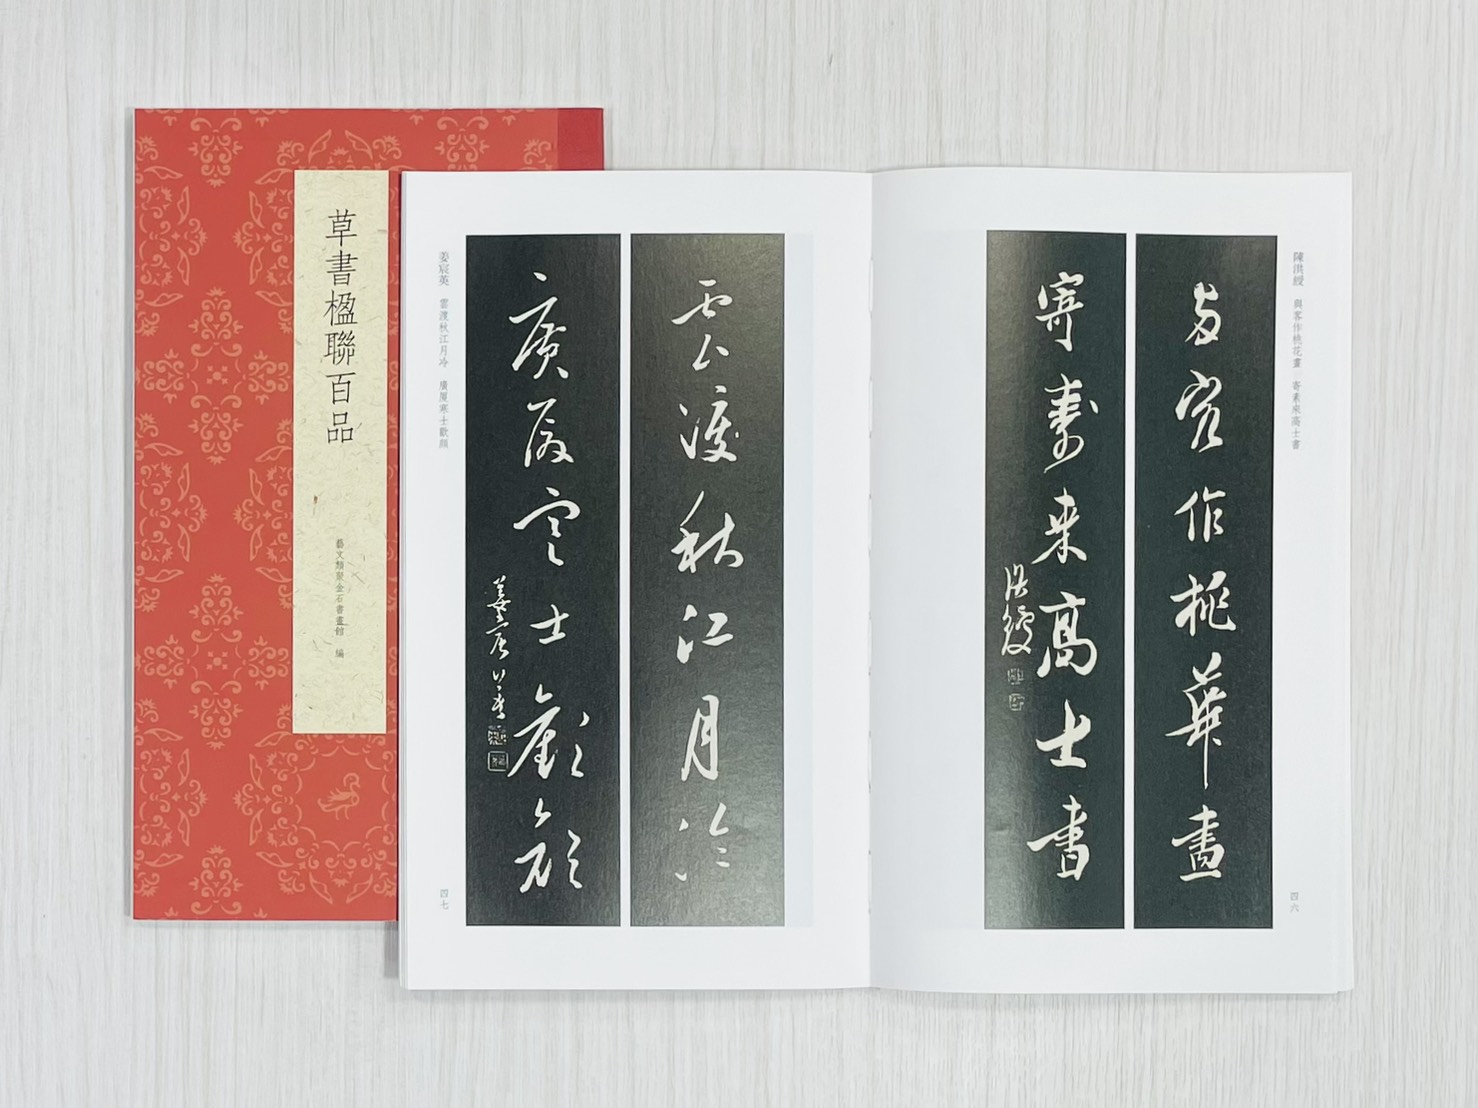 草書楹聯百品
藝文類聚金石書畫館 編
陳洪綬 與客作桃花畫 寄素來高士書
与客作桃華畫
寄素来高士書
洪綬
四六
姜宸英 雲渡秋江月冷 廣厦寒士歡顔
雲渡秋江月冷
廣厦寒士歡顔
姜宸英
四七